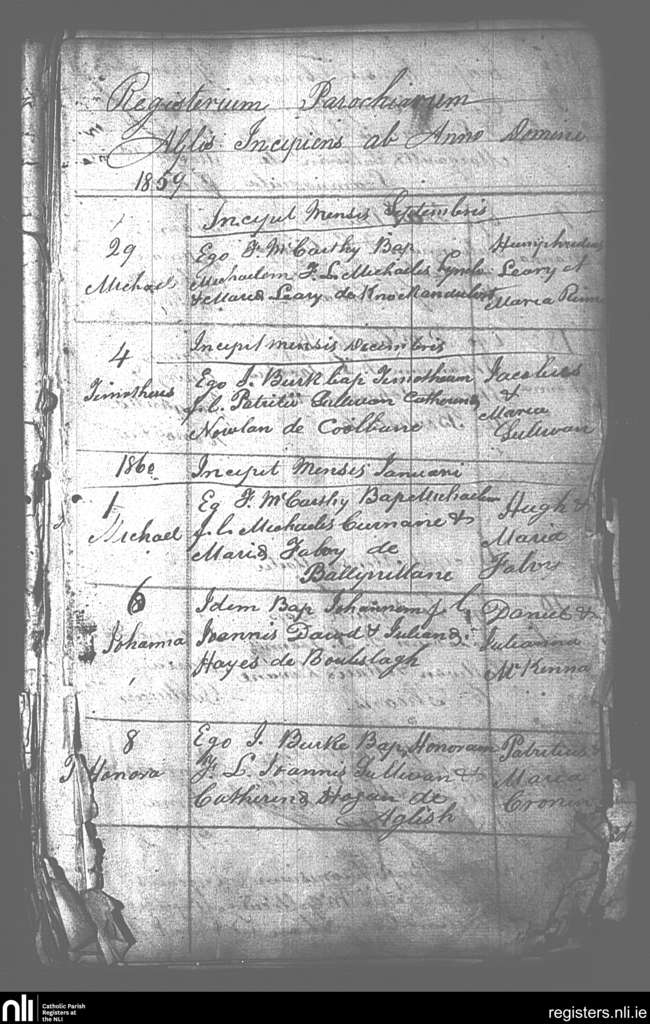 Registerium Parochiarum
Aglis Incipiens ab Anno Domini
1859
Incipit Mensis Septembris
29
Michael
Ego J. McCarthy Bap
Michaelem F. L. Michaelis Lynch
& Maria Leary de
Humphredus
Leary et
Maria
4
Timotheus
Incipit mensis Decembris
Ego J. Burk bap Timotheum
f. l. Patritii Sullivan Catherina
Nowlan de Coolbane
Jacobus
&
Maria
Sullivan
1860
Incipit Menses Januari
1
Michael
Eg J. McCarthy Bap Michaelem
f. l. Michaelis Curnane &
Maria Falvy de
Ballynillane
Hugh &
Maria
Falvy
6
Johanna
Idem Bap Johannam f. l.
Joannis Dawd & Juliana
Hayes de
Daniel &
Julianna
McKenna
8
Honora
Ego J. Burke Bap Honoram
F. L. Joannis Sullivan &
Catherina Hogan de
Aglish
Patritius &
Maria
Cronin
nli
Catholic Parish
Registers at
the NLI
registers.nli.ie